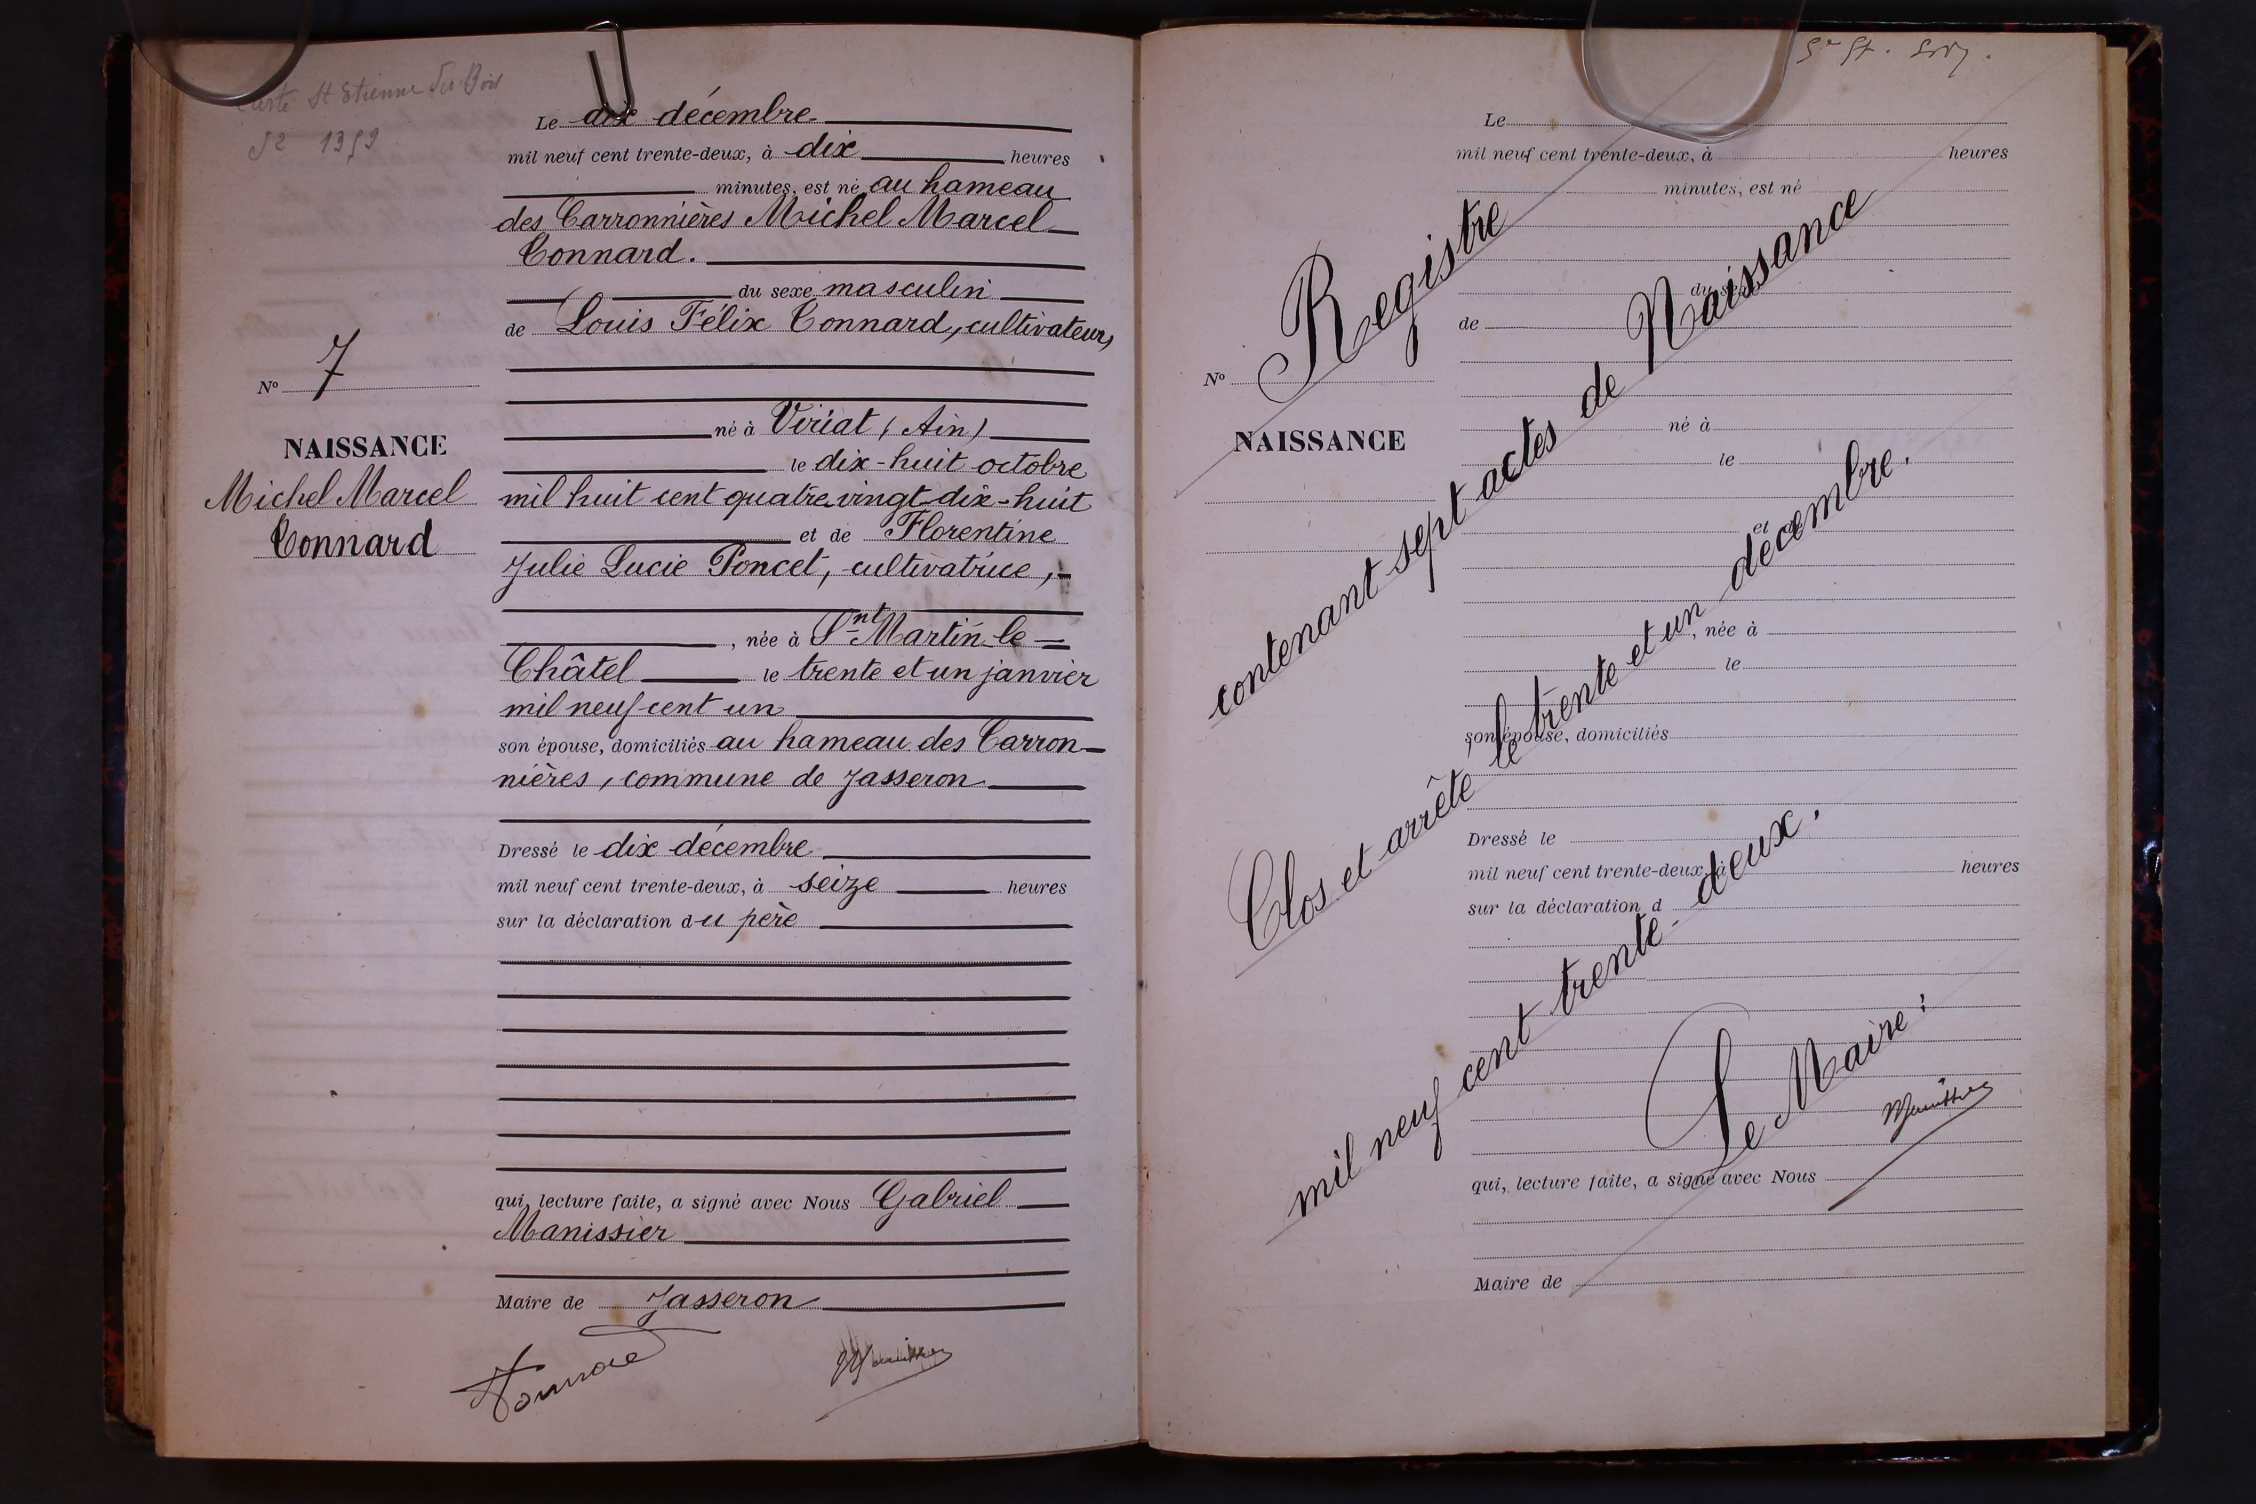 Carte St Etienne du Bois
52 1359
Le dix décembre
mil neuf cent trente-deux, à dix heures
minutes, est né au hameau
des Carronnières Michel Marcel
Connard.
du sexe masculin
de Louis Félix Connard, cultivateur,
No 7
né à Viriat (Ain)
NAISSANCE
le dix-huit octobre
Michel Marcel
mil huit cent quatre-vingt-dix-huit
Connard
et de Florentine
Julie Lucie Poncet, cultivatrice,
, née à Snt Martin-le=
Châtel le trente et un janvier
mil neuf cent un
son épouse, domiciliés au hameau des Carron-
nières, commune de Jasseron
Dressé le dix décembre
mil neuf cent trente-deux, à seize heures
sur la déclaration du père
qui, lecture faite, a signé avec Nous Gabriel
Manissier
Maire de Jasseron
Connard
Le
mil neuf cent trente-deux, à heures
minutes, est né
du sexe
de
No
NAISSANCE
né à
le
et de
, née à
le
son épouse, domiciliés
Dressé le
mil neuf cent trente-deux, à heures
sur la déclaration d
qui, lecture faite, a signé avec Nous
Maire de
Registre
contenant sept actes de Naissance
Clos et arrêté le trente et un décembre.
mil neuf cent trente-deux.
Le Maire :